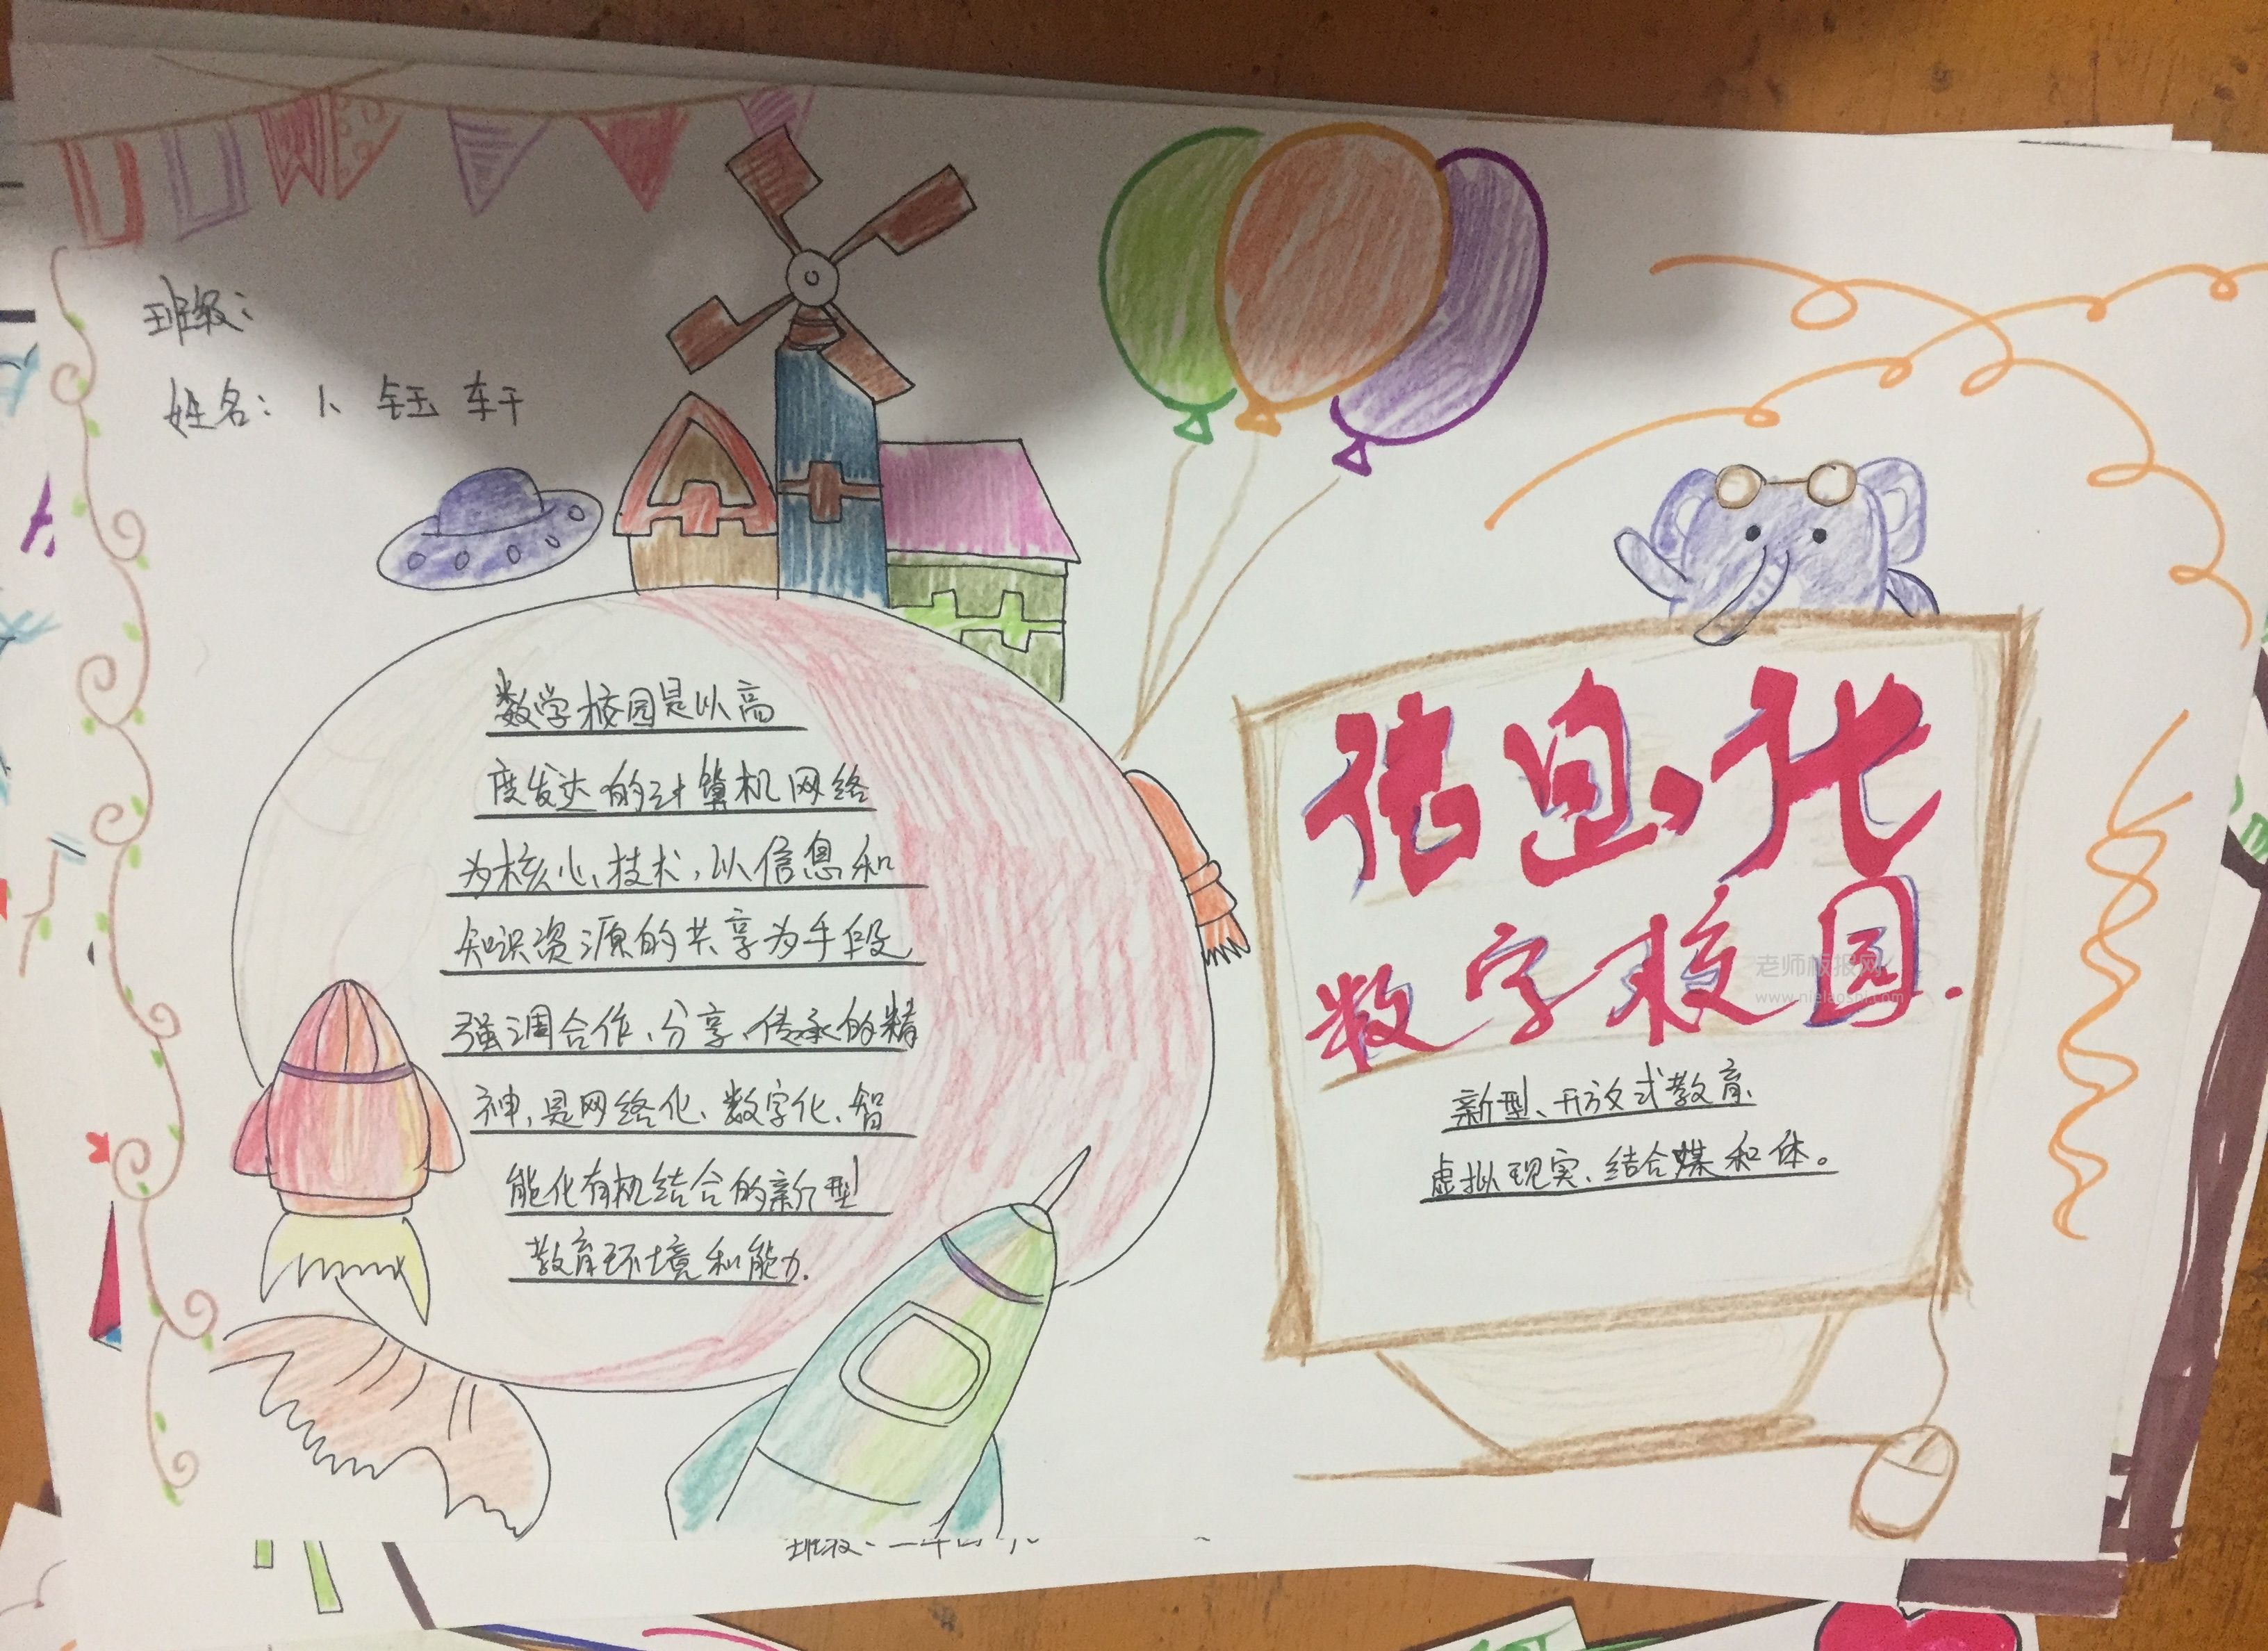 班级：
姓名：卜钰轩
数学校园是以高
度发达的计算机网络
为核心、技术，以信息和
知识资源的共享为手段
强调合作、分享、传承的精
神，是网络化、数字化、智
能化有机结合的新型
教育环境和能力.
信息化
数字校园.
老师板报网
新型、开放式教育、
虚拟现实、结合媒和体。
班级：